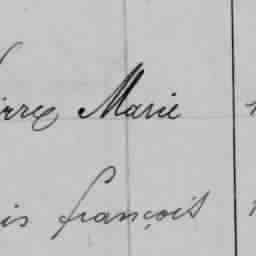 irre Marie
is françois